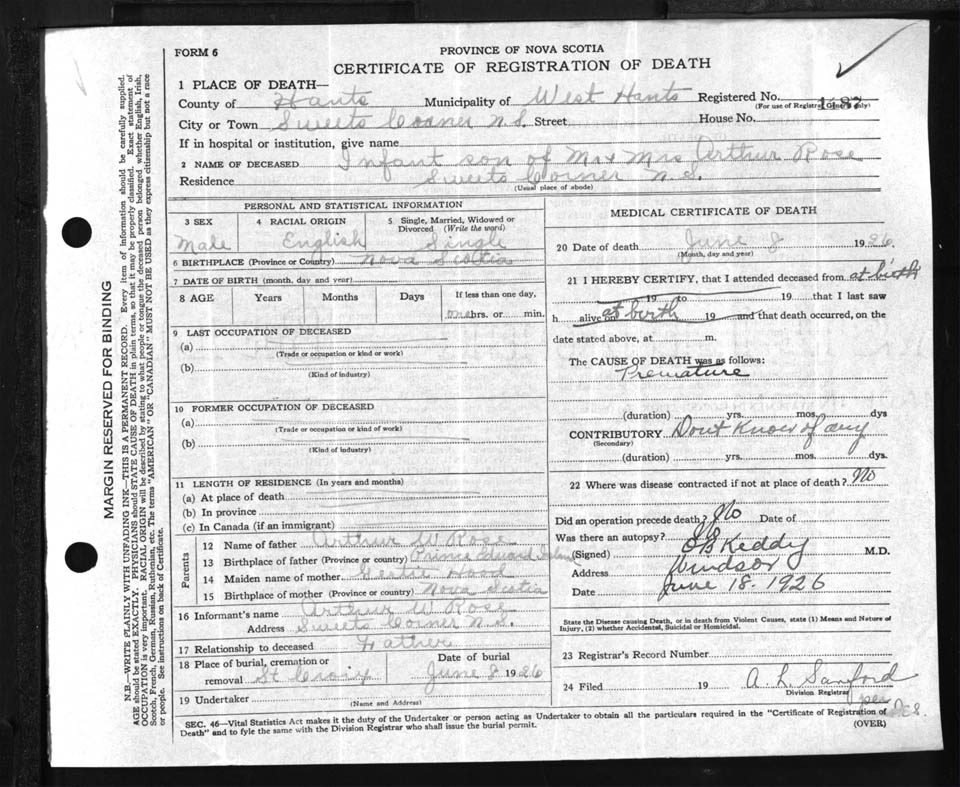 FORM 6
PROVINCE OF NOVA SCOTIA
CERTIFICATE OF REGISTRATION OF DEATH
1 PLACE OF DEATH—
County of Hants Municipality of West Hants Registered No. 1187
(For use of Registrar General only)
City or Town Sweets Corner N.S. Street House No.
If in hospital or institution, give name
2 NAME OF DECEASED Infant son of Mr & Mrs Arthur Rose
Residence Sweets Corner N.S.
(Usual place of abode)
PERSONAL AND STATISTICAL INFORMATION
3 SEX 4 RACIAL ORIGIN 5 Single, Married, Widowed or Divorced (Write the word)
Male English Single
6 BIRTHPLACE (Province or Country) Nova Scotia
7 DATE OF BIRTH (month, day and year)
8 AGE Years Months Days If less than one day,
one hrs. or min.
9 LAST OCCUPATION OF DECEASED
(a)
(Trade or occupation or kind or work)
(b)
(Kind of industry)
10 FORMER OCCUPATION OF DECEASED
(a)
(Trade or occupation or kind of work)
(b)
(Kind of industry)
11 LENGTH OF RESIDENCE (In years and months)
(a) At place of death
(b) In province
(c) In Canada (if an immigrant)
Parents
12 Name of father Arthur W Rose
13 Birthplace of father (Province or country) Prince Edward Island
14 Maiden name of mother Hood
15 Birthplace of mother (Province or country) Nova Scotia
16 Informant's name Arthur W Rose
Address Sweets Corner N.S.
17 Relationship to deceased Father
18 Place of burial, cremation or removal St Croix Date of burial June 8 1926
19 Undertaker
(Name and Address)
MEDICAL CERTIFICATE OF DEATH
20 Date of death June 8 1926
(Month, day and year)
21 I HEREBY CERTIFY, that I attended deceased from at birth
19 to 19 that I last saw
h alive on at birth 19 and that death occurred, on the
date stated above, at m.
The CAUSE OF DEATH was as follows:
Premature
(duration) yrs. mos. dys
CONTRIBUTORY Dont Know of any
(Secondary)
(duration) yrs. mos. dys.
22 Where was disease contracted if not at place of death? No
Did an operation precede death? No Date of
Was there an autopsy?
(Signed) Keddy M.D.
Address Windsor
Date June 18. 1926
State the Disease causing Death, or in death from Violent Causes, state (1) Means and Nature of
Injury, (2) whether Accidental, Suicidal or Homicidal.
23 Registrar's Record Number
24 Filed 19 A. L. Sanford
Division Registrar
per
SEC. 46—Vital Statistics Act makes it the duty of the Undertaker or person acting as Undertaker to obtain all the particulars required in the "Certificate of Registration of
Death" and to fyle the same with the Division Registrar who shall issue the burial permit.
(OVER)
MARGIN RESERVED FOR BINDING
N.B.—WRITE PLAINLY WITH UNFADING INK—THIS IS A PERMANENT RECORD. Every item of information should be carefully supplied.
AGE should be stated EXACTLY. PHYSICIANS should STATE CAUSE OF DEATH in plain terms, so that it may be properly classified. Exact statement of
OCCUPATION is very important. RACIAL ORIGIN will be described by stating to what people or tongue the deceased person belonged whether English, Irish,
Scotch, French, German, Russian, Ruthenian, etc. The terms "AMERICAN" OR "CANADIAN" MUST NOT BE USED as they express citizenship but not a race
or people. See instructions on back of Certificate.